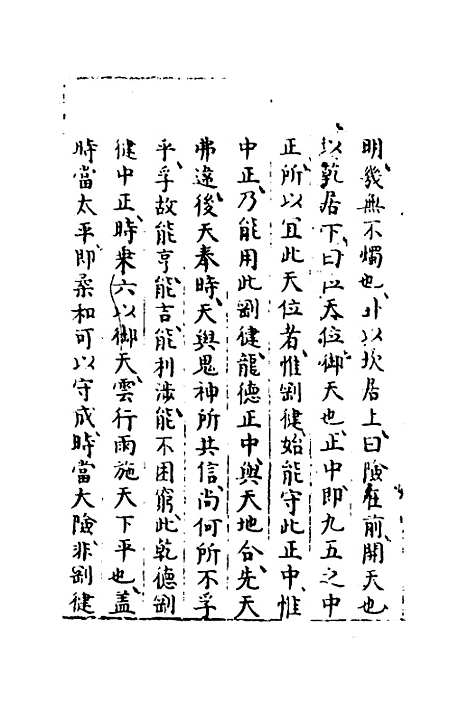 明幾無不燭也外以坎居上曰險在前開天也
以乾居下曰位天位御天也正中即九五之中
正所以宜此天位者惟剛健始能守此正中惟
中正乃能用此剛健龍德正中與天地合先天
弗違後天奉時天與鬼神所共信尚何所不孚
乎孚故能亨能吉能利涉能不困窮此乾德剛
健中正時乘六以御天雲行雨施天下平也蓋
時當太平即柔和可以守成時當大險非剛健